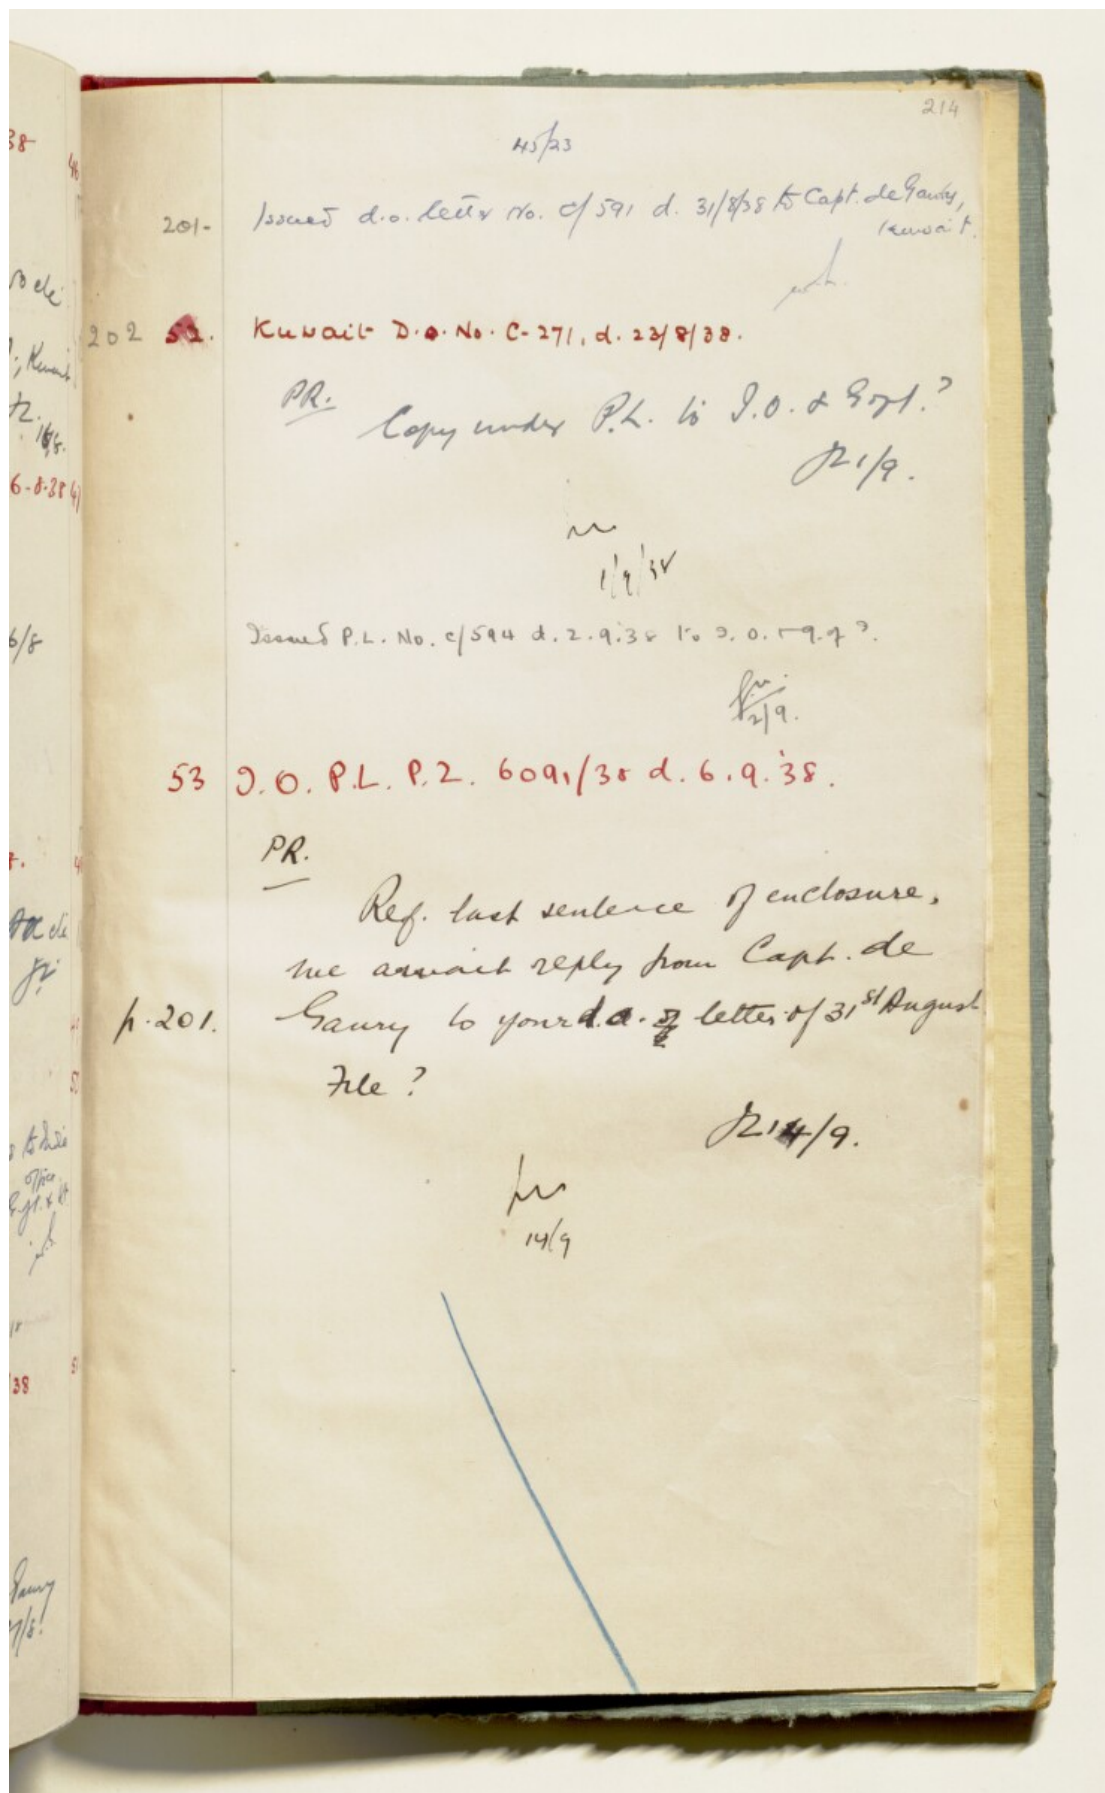 214
45/23
201- Issued d.o. letter No. C/591 d. 31/8/38 to Capt. de Gaury,
Kuwait.
202 52. Kuwait D.O. No. C-271, d. 23/8/38.
PR.
Copy under P.L. to I.O. & Govt.?
1/9.
1/9/38
Issued P.L. No. C/594 d. 2.9.38 to I.O.
2/9.
53 I.O. P.L. P.Z. 6091/38 d. 6.9.38.
PR.
Ref. last sentence of enclosure,
we await reply from Capt. de
p. 201. Gaury to your d.o. letter of 31st August
File?
14/9.
14/9